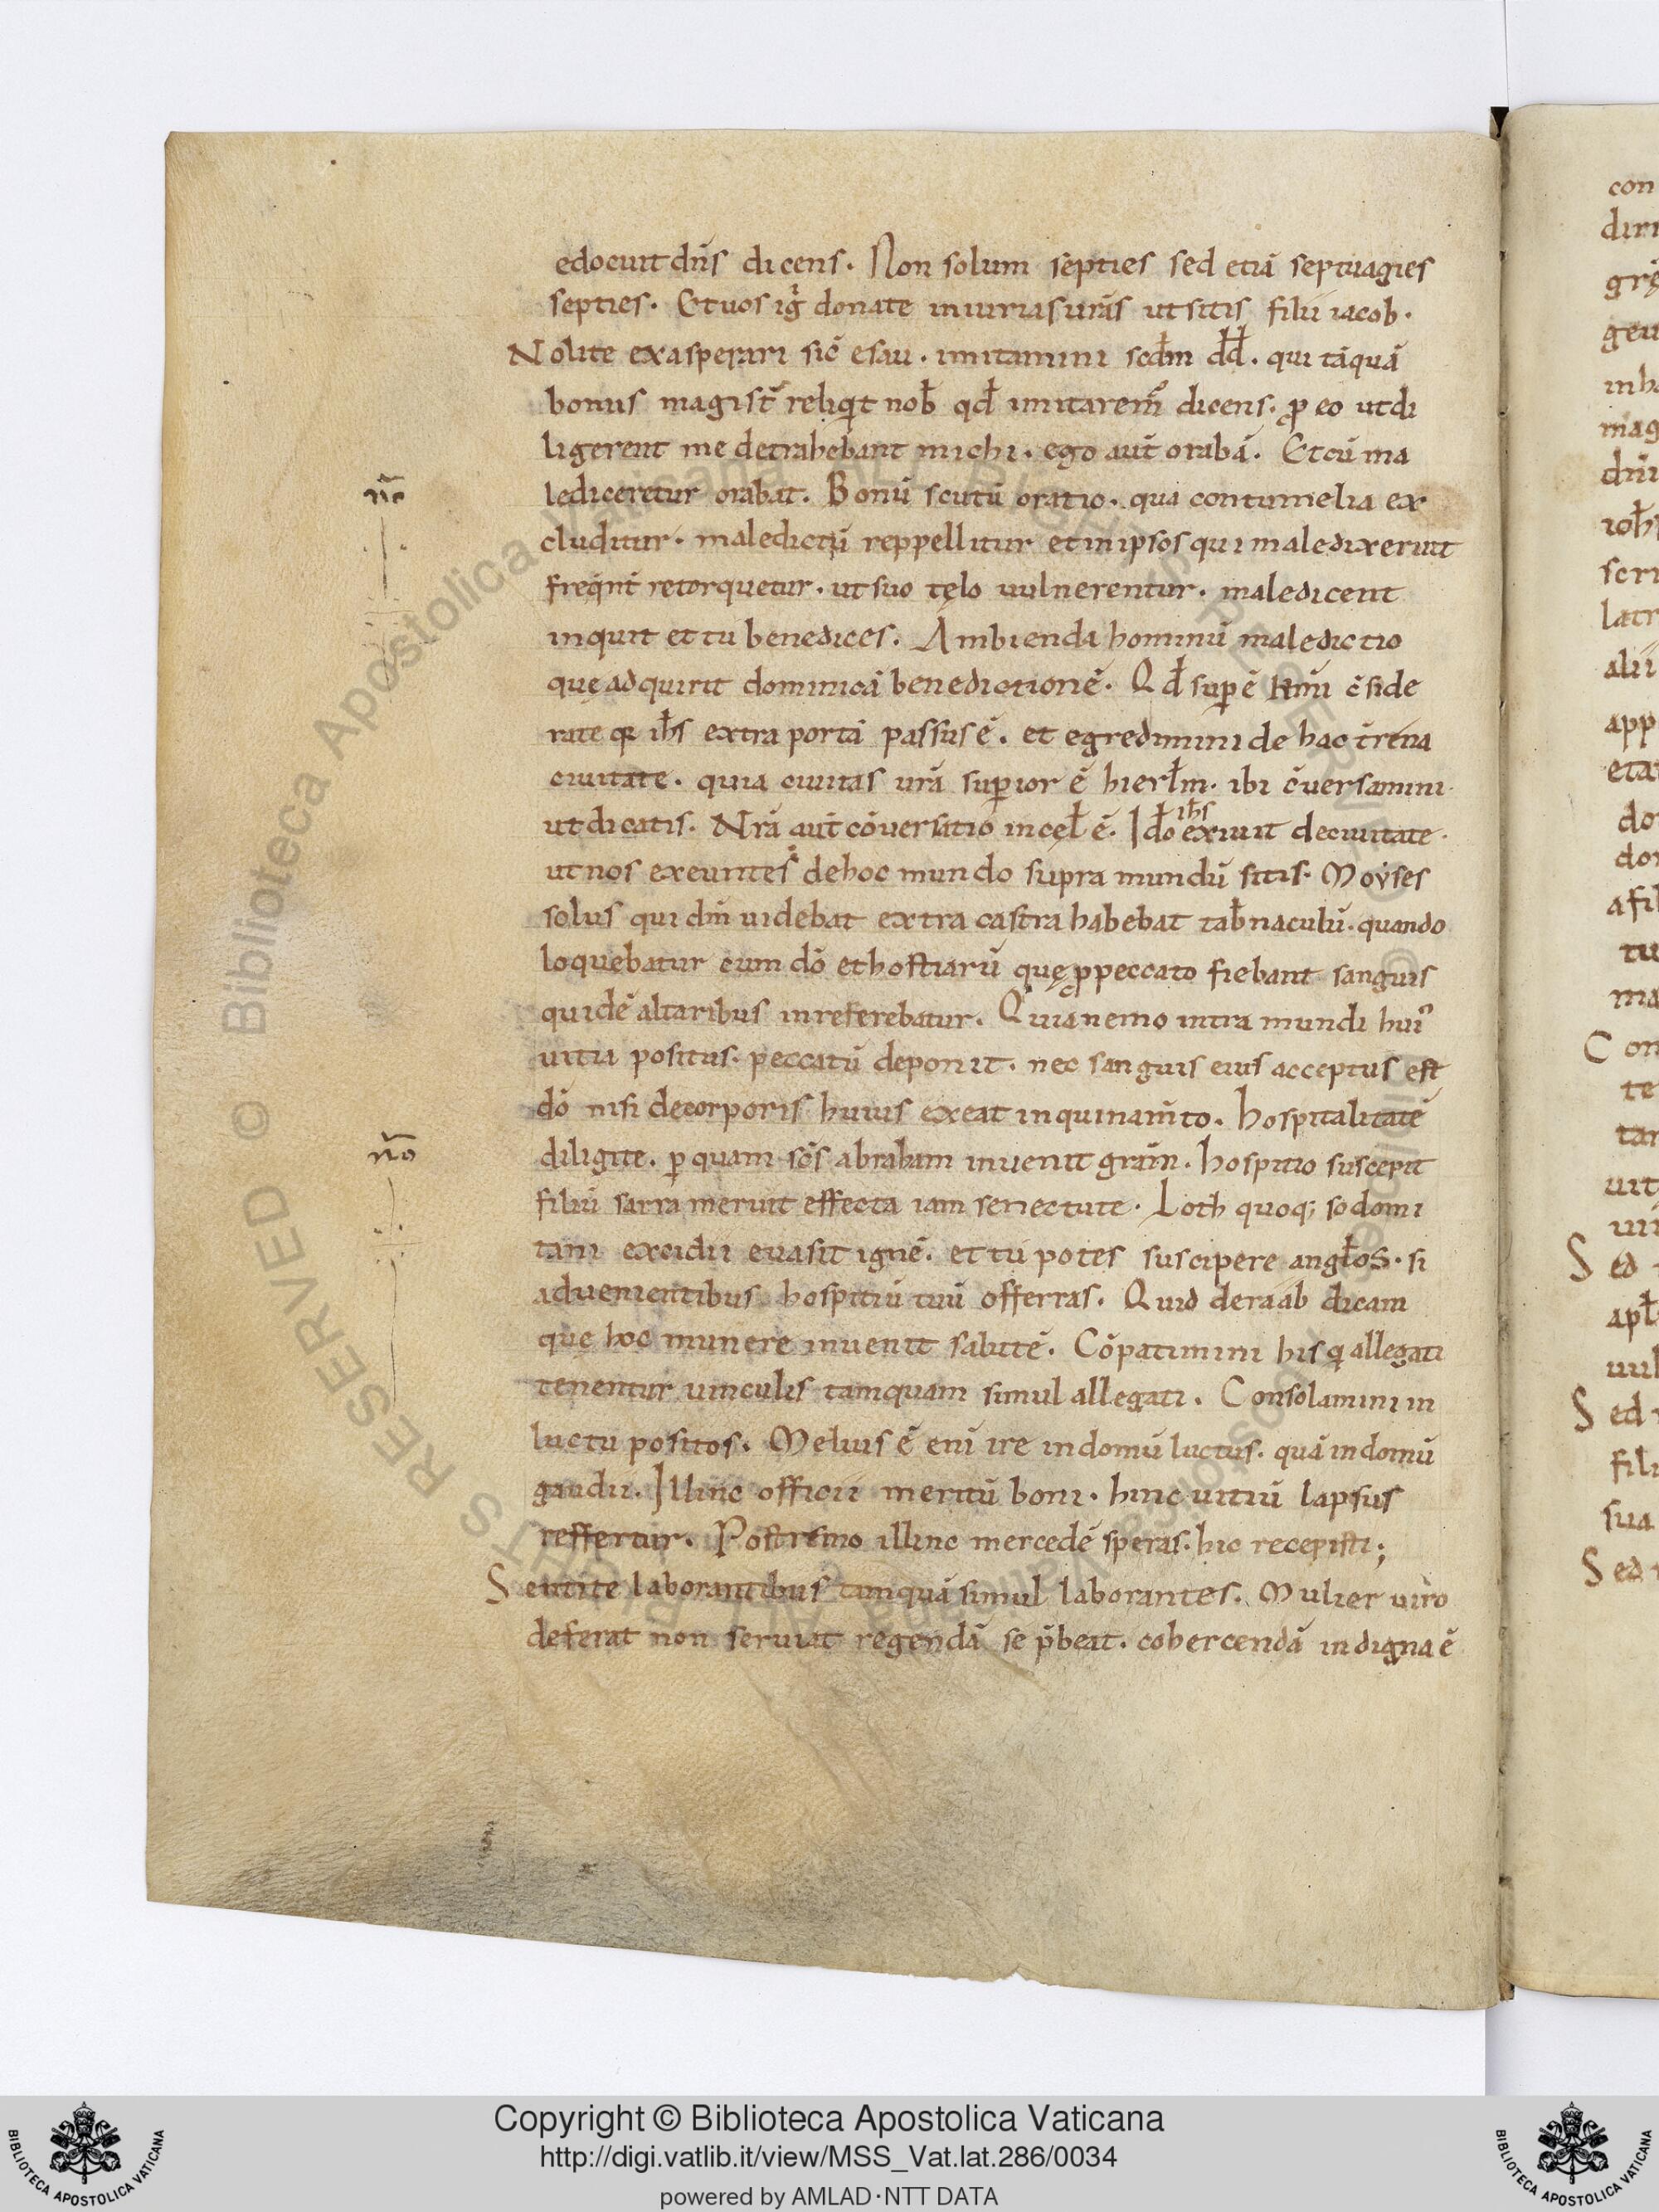 edocuit dñs dicens. Non solum septies sed etiā septuagies
septies. Et uos igͥ donate iniurias urās ut sitis filii iacob.
Nolite exasperari sic̄ esau. imitamini scđm dđ. qui tāquā
bonus magist̄ reliqͥt nob̄ qđ imitarem᷒ dicens. ꝓ eo ut di
ligerent me detrahebant michi. ego aut̄ orabā. Et cū ma
lediceretur orabat. Bonū scutū oratio. qua contumelia ex
cluditur. maledictū reppellitur et in ipsos qui maledixerunt
freq̄nt̄ retorquetur. ut suo tęlo uulnerentur. maledicent
inquit et tu benedices. Ambienda hominū maledictio
quę adquirit dominicā benedictionē. Qđ suꝑ ē kmi c̄side
rate qꝛ ih̄s extra portā passus ē. et egredimini de hac t̄rena
ciuitate. quia ciuitas urā suꝑior ē hierł̄m. ibi c̄uersamini.
ut dicatis. Nrā aut̄ cōuersatio in cęł ē. Iđo ih̄s exiuit de ciuitate.
ut nos exeuntes de hoc mundo supra mundū sitis. Moẏses
solus qui dm̄ uidebat extra castra habebat tab̄naculū. quando
loquebatur cum dō et hostiarū quę ꝓ peccato fiebant sanguis
quidē altaribus inreferebatur. Quia nemo intra mundi hui᷒
uitia positus. peccatū deponit. nec sanguis eius acceptus est
dō nisi de corporis huius exeat inquinam̄to. Hospitalitatē
nō
diligite. ꝑ quam sc̄s abraham inuenit grām. hospitio suscepit
filiū sarra meruit effecta iam senectute. Loth quoq; sodomi
tani excidii euasit ignē. et tu potes suscipere angłos. si
aduenientibus hospitiū tuū offerras. Quid de raab dicam
quę hoc munere inuenit salutē. Cōpatimini his qͥ allegati
tenentur uinculis tamquam simul allegati. Consolamini in
luctu positos. Melius ē enī ire in domū luctus. quā in domū
gaudii. Illinc officii meritū boni. hinc uitiū lapsus
reffertur. Postremo illinc mercedē speras. hic recepisti;
Sentite laborantibus tanquā simul laborantes. Mulier uiro
deferat non seruiat regendā se p̄beat. cohercendā indigna ē
nō
con
diri
grę
geu
mag
scri
latr
alii
app
do
tu
ma
Con
te
tan
uit
Sed
uul
Sed
fili
sua
Sed
© Biblioteca Apostolica Vaticana ALL RIGHTS RESERVED
Copyright © Biblioteca Apostolica Vaticana
http://digi.vatlib.it/view/MSS_Vat.lat.286/0034
powered by AMLAD·NTT DATA
BIBLIOTECA APOSTOLICA VATICANA
BIBLIOTECA APOSTOLICA VATICANA